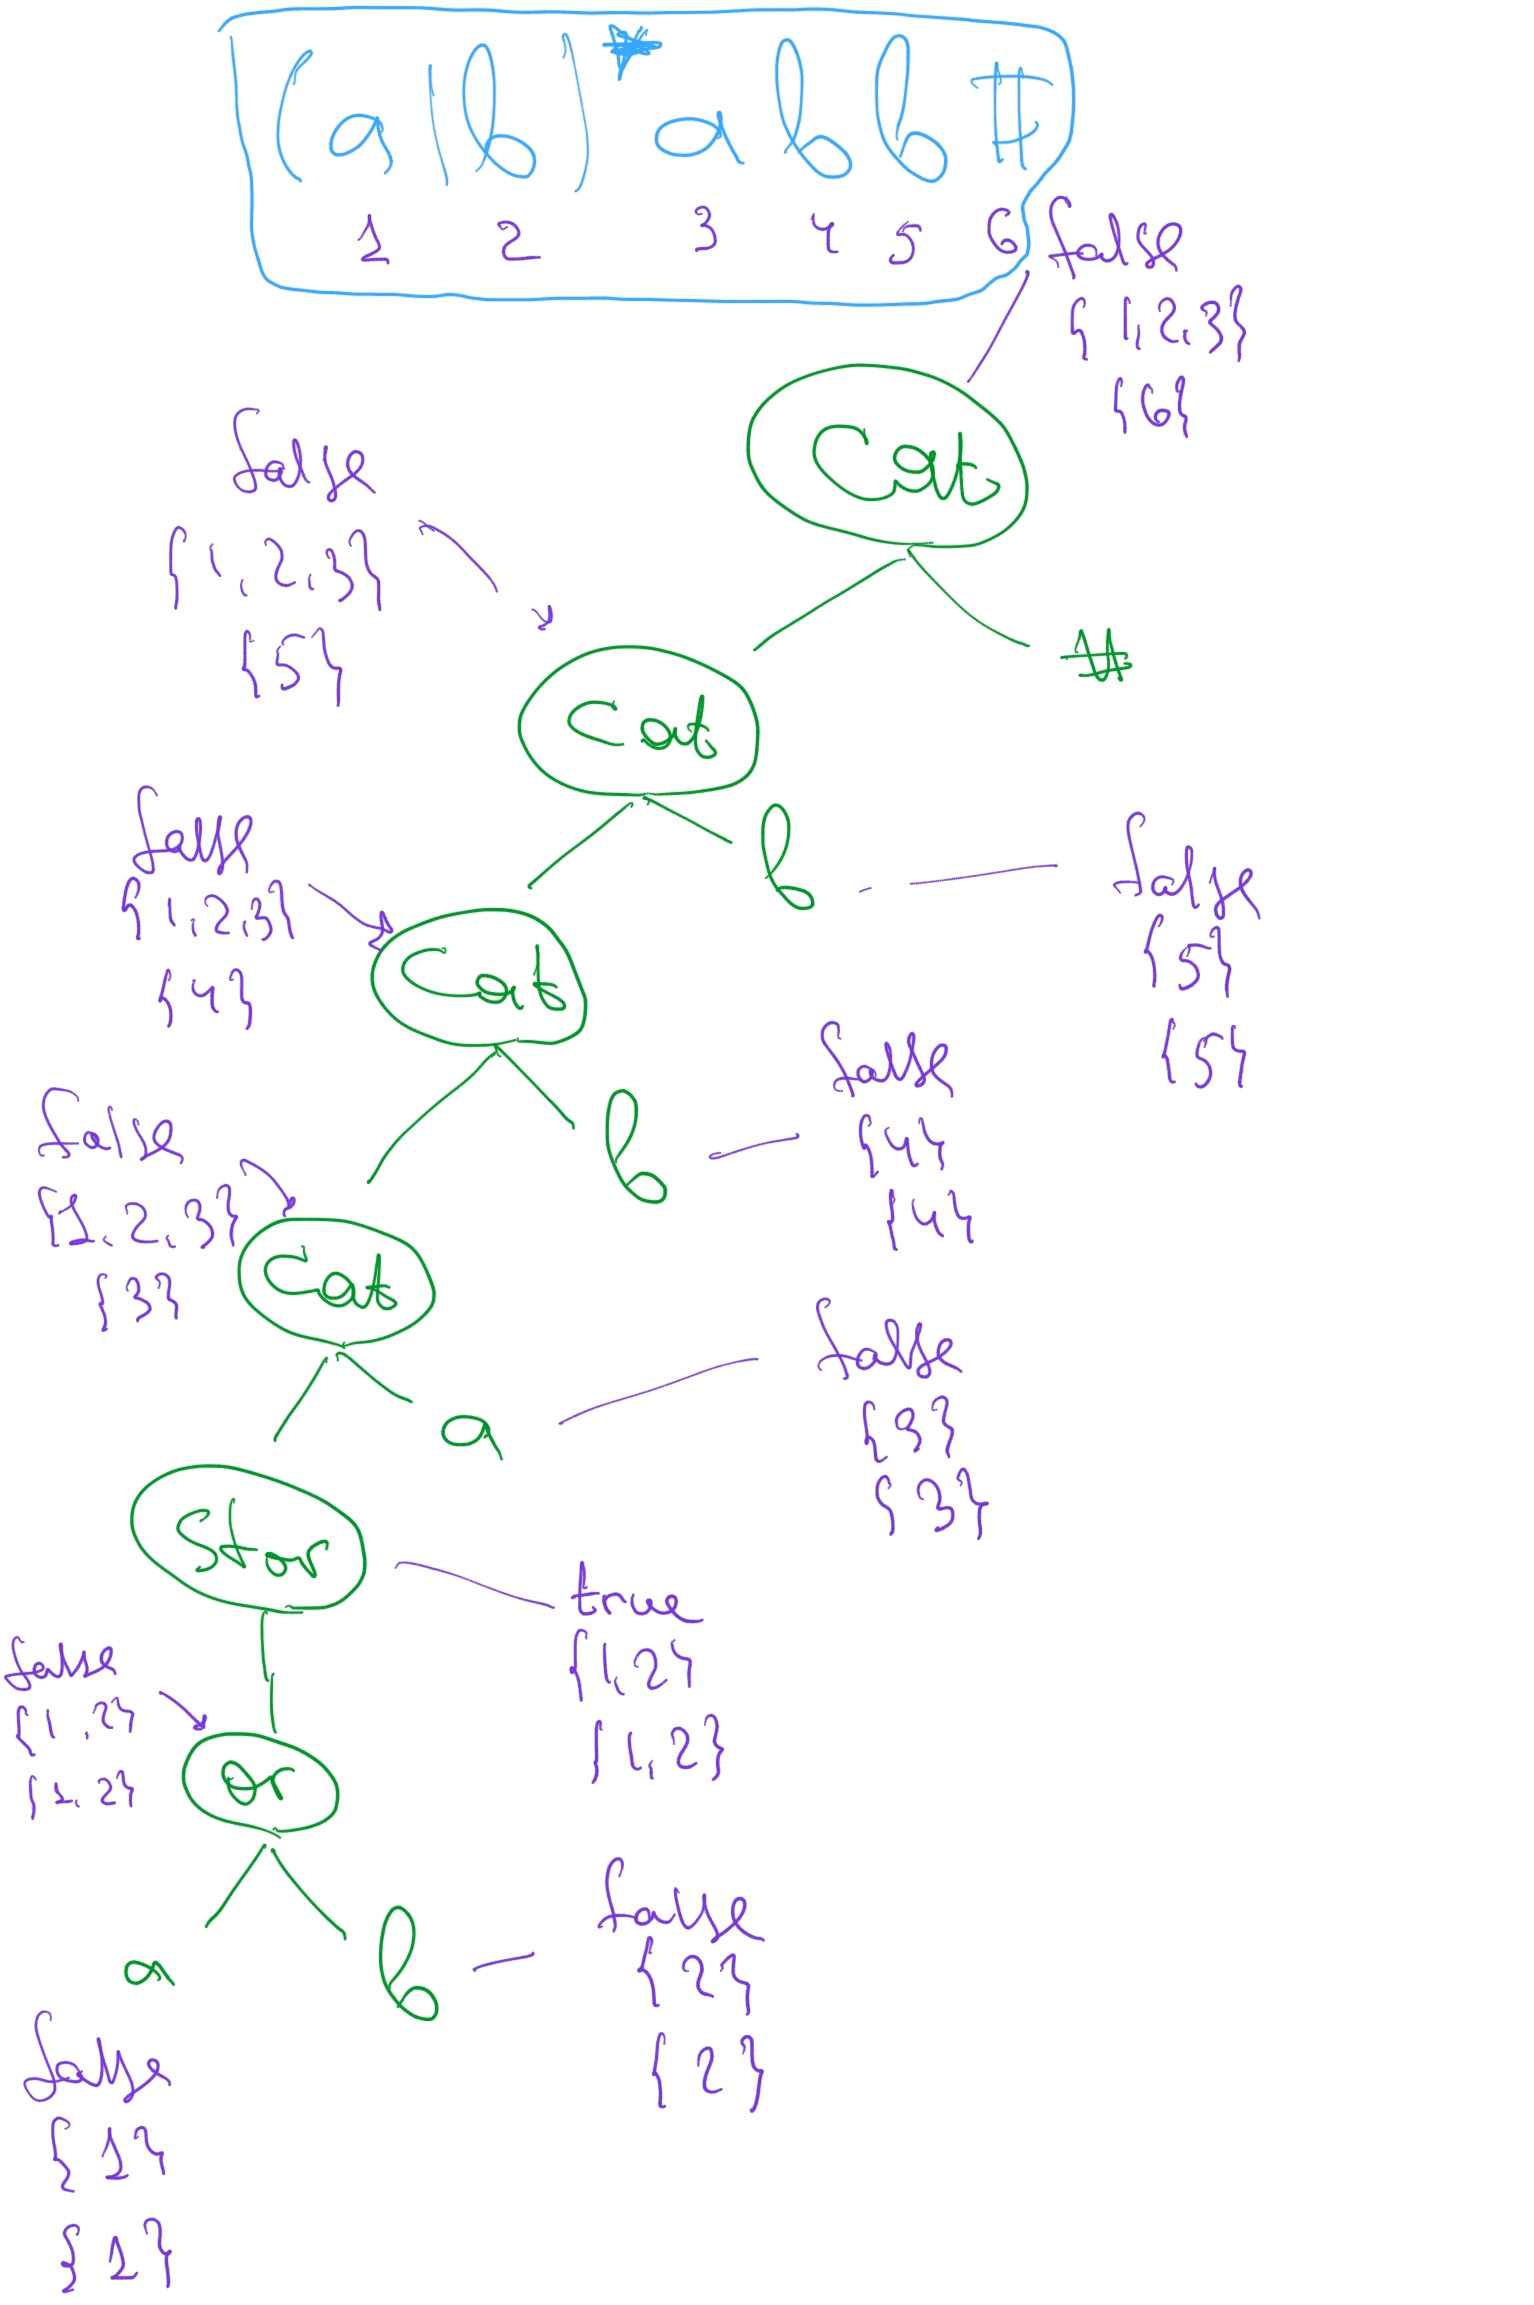 (a|b)* a b b #
1 2 3 4 5 6
false
{1,2,3}
{6}
Cat
false
{1,2,3}
{5}
#
Cat
false
{1,2,3}
{4}
b
false
{5}
{5}
Cat
false
{1,2,3}
{3}
b
false
{4}
{4}
Cat
a
false
{3}
{3}
Star
true
{1,2}
{1,2}
false
{1,2}
{1,2}
or
a
b
false
{2}
{2}
false
{1}
{1}